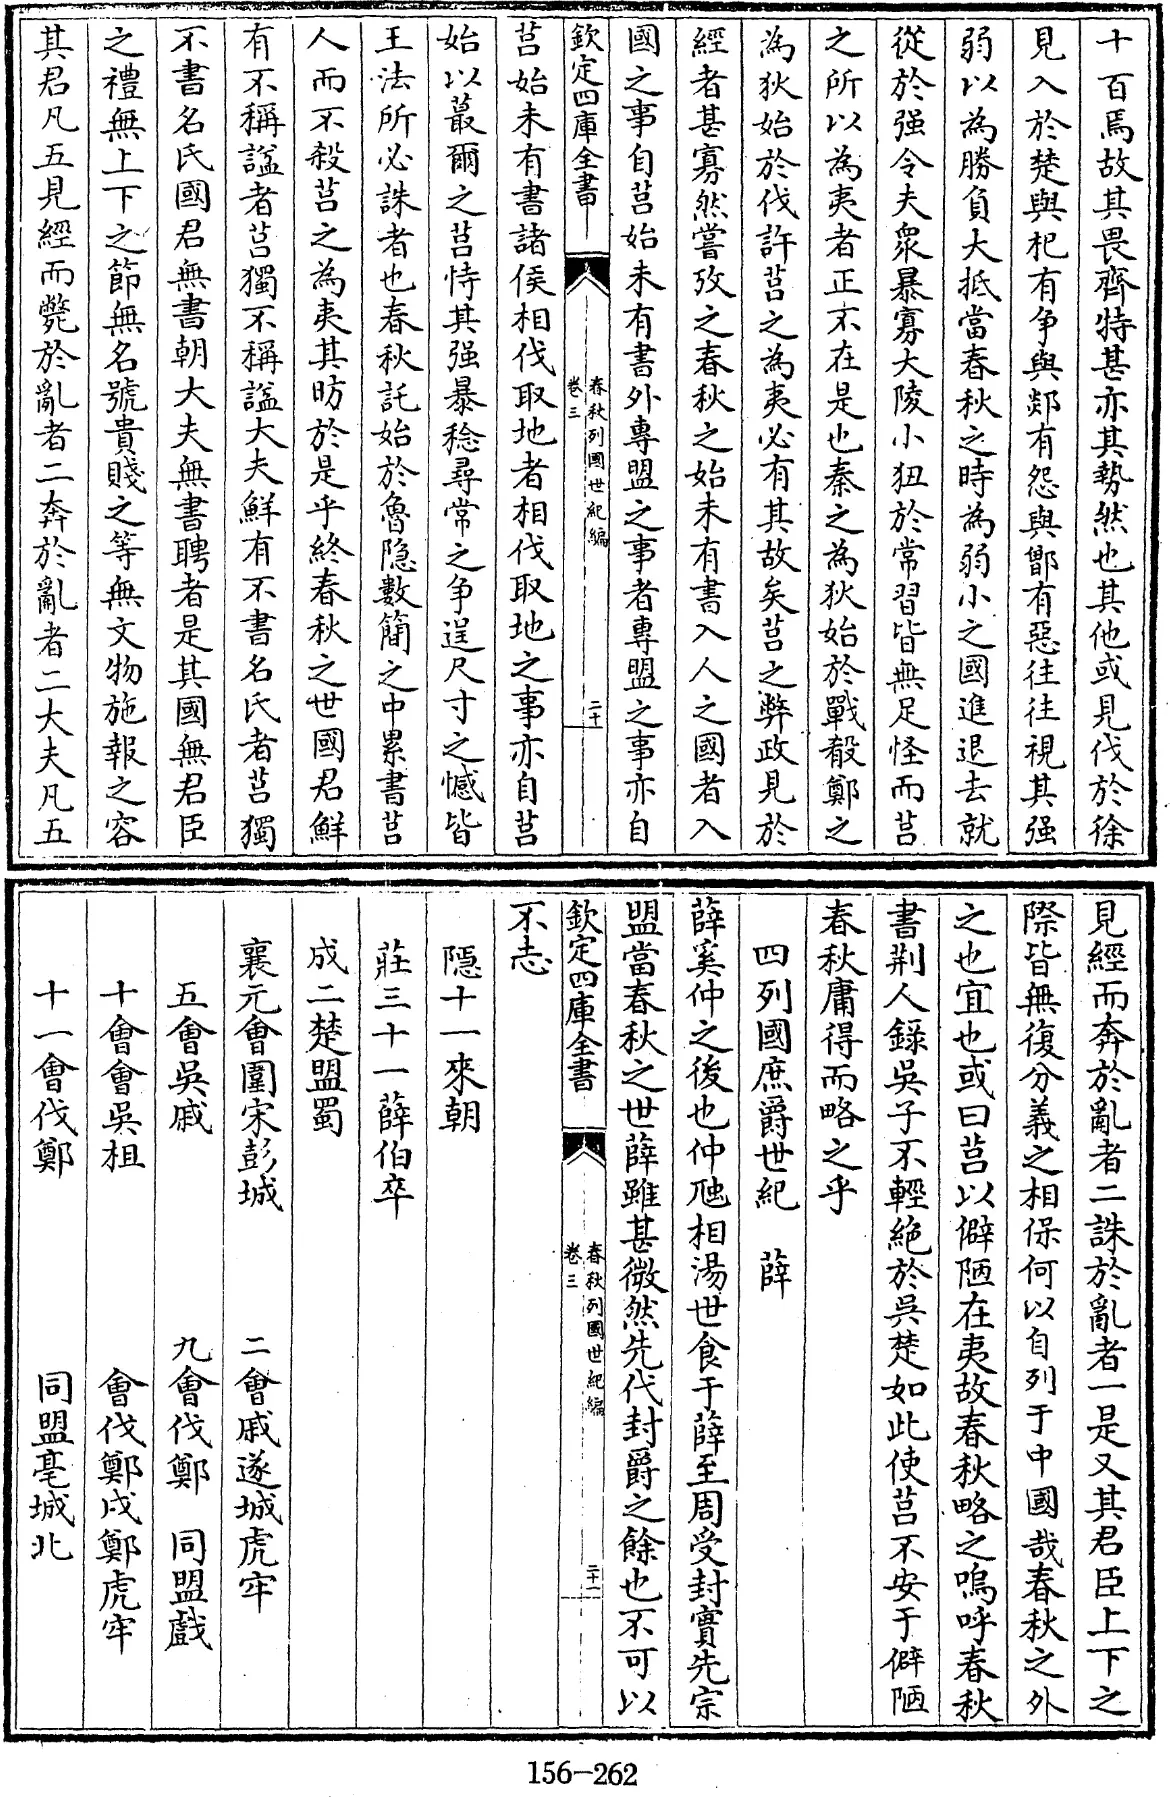 十百焉故其畏齊特甚亦其勢然也其他或見伐於徐
見入於楚與杞有争與郯有怨與鄫有惡往往視其强
弱以為勝負大抵當春秋之時為弱小之國進退去就
從於强令夫衆暴寡大陵小狃於常習皆無足怪而莒
之所以為夷者正不在是也秦之為狄始於戰殽鄭之
為狄始於伐許莒之為夷必有其故矣莒之弊政見於
經者甚寡然嘗攷之春秋之始未有書入人之國者入
國之事自莒始未有書外專盟之事者專盟之事亦自
欽定四庫全書
春秋列國世紀編
卷三
二十
莒始未有書諸侯相伐取地者相伐取地之事亦自莒
始以蕞爾之莒恃其强暴稔尋常之争逞尺寸之憾皆
王法所必誅者也春秋託始於魯隐數簡之中累書莒
人而不殺莒之為夷其昉於是乎終春秋之世國君鮮
有不稱謚者莒獨不稱謚大夫鮮有不書名氏者莒獨
不書名氏國君無書朝大夫無書聘者是其國無君臣
之禮無上下之節無名號貴賤之等無文物施報之容
其君凡五見經而斃於亂者二奔於亂者二大夫凡五
見經而奔於亂者二誅於亂者一是又其君臣上下之
際皆無復分義之相保何以自列于中國哉春秋之外
之也宜也或曰莒以僻陋在夷故春秋略之嗚呼春秋
書荆人錄吳子不輕絶於吳楚如此使莒不安于僻陋
春秋庸得而略之乎
四列國庶爵世紀　薛
薛奚仲之後也仲虺相湯世食于薛至周受封實先宗
盟當春秋之世薛雖甚微然先代封爵之餘也不可以
欽定四庫全書
春秋列國世紀編
卷三
二十一
不志
隱十一來朝
莊三十一薛伯卒
成二楚盟蜀
襄元會圍宋彭城　二會戚遂城虎牢
五會吳戚　九會伐鄭　同盟戲
十會會吳柤　會伐鄭戍鄭虎牢
十一會伐鄭　同盟亳城北
156-262